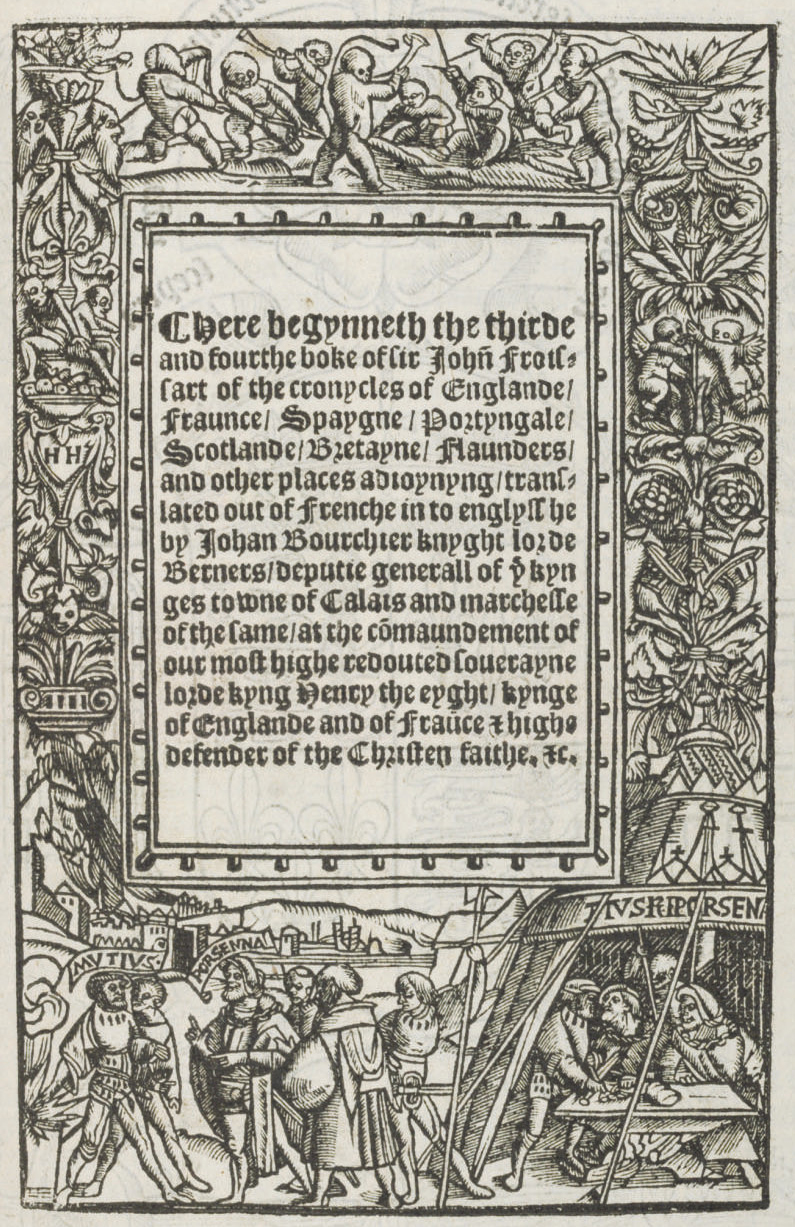 ¶Here begynneth the thirde
and fourthe boke of sir Johñ Frois⸗
sart of the cronycles of Englande/
Fraunce/ Spaygne / Portyngale/
Scotlande/ Bretayne/ Flaunders/
and other places adioynyng/trans⸗
lated out of Frenche in to englyssh he
by Johan Bourchier knyght lorde
Berners/deputie generall of yͤ kyn
ges towne of Calais and marchesse
of the same/at the cõmaundement of
our most highe redouted souerayne
lorde kyng Henry the eyght/ kynge
of Englande and of Fraũce ⁊ highe
defender of the Christen faithe. ⁊c.
HH
MVTIVS
PORSENNA
TVS PORSEN